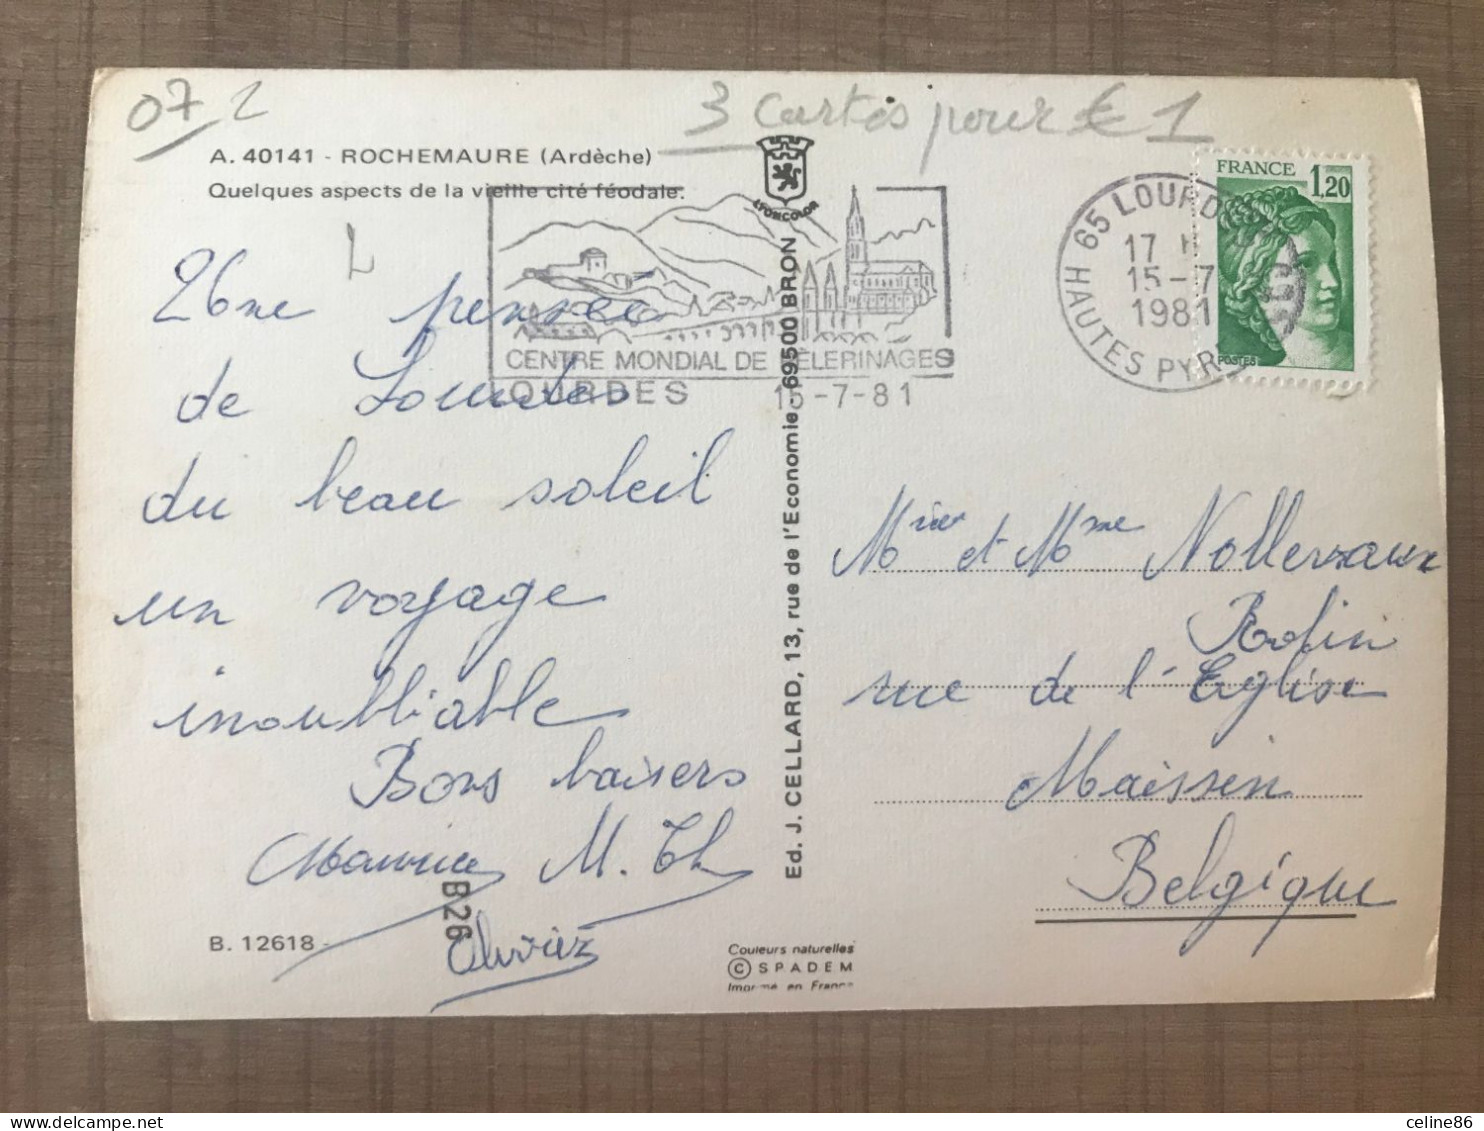 07 2
3 Cartes pour € 1
A. 40141 - ROCHEMAURE (Ardèche)
Quelques aspects de la vieille cité féodale.
LYONCOLOR
CENTRE MONDIAL DE PÈLERINAGES
LOURDES 15-7-81
65 LOURD
17 H
15-7
1981
HAUTES PYR
FRANCE 1,20
POSTES
2ème pensée
de Lourdes
du beau soleil
un voyage
inoubliable
Bons baisers
Maurice M. Th
Olivier
B. 12618
B26
Ed. J. CELLARD, 13, rue de l'Economie, 69500 BRON
Couleurs naturelles
© SPADEM
Imprimé en France
et Mme Nollevaux
Rolin
rue de l'Eglise
Maissin
Belgique
celine86